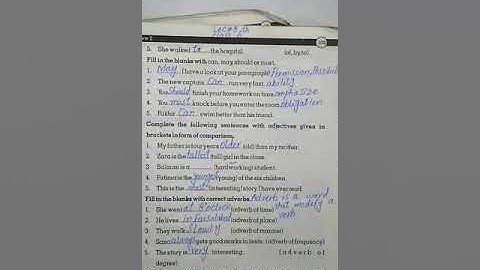 5. She walked to the hospital. (of, by, to)
Fill in the blanks with can, may should or must.
1. May I have a look at your paragraph? Permission,
2. The new captain can run very fast. ability
3. You should finish your homework on time. emphasize
4. You must knock before you enter the room obligation
5. can swim better than his friend.
Complete the following sentences with adjectives given in
brackets in form of comparison.
1. My father is four years older (old) than my mother.
2. Zara is the tallest (tall) girl in the class.
3. is a (hardworking) student.
4. Fatima is the (young) of the six children.
5. This is the (interesting) story I have ever read.
Fill in the blanks with correct adverbs. Adverb is a word
that modify a
verb
1. She went at 8 o'clock (adverb of time)
2. He lives in Faisalabad (adverb of place)
3. They walk slowly (adverb of manner)
4. Sana always gets good marks in tests. (adverb of frequency)
5. The story is very interesting. (adverb of
degree)